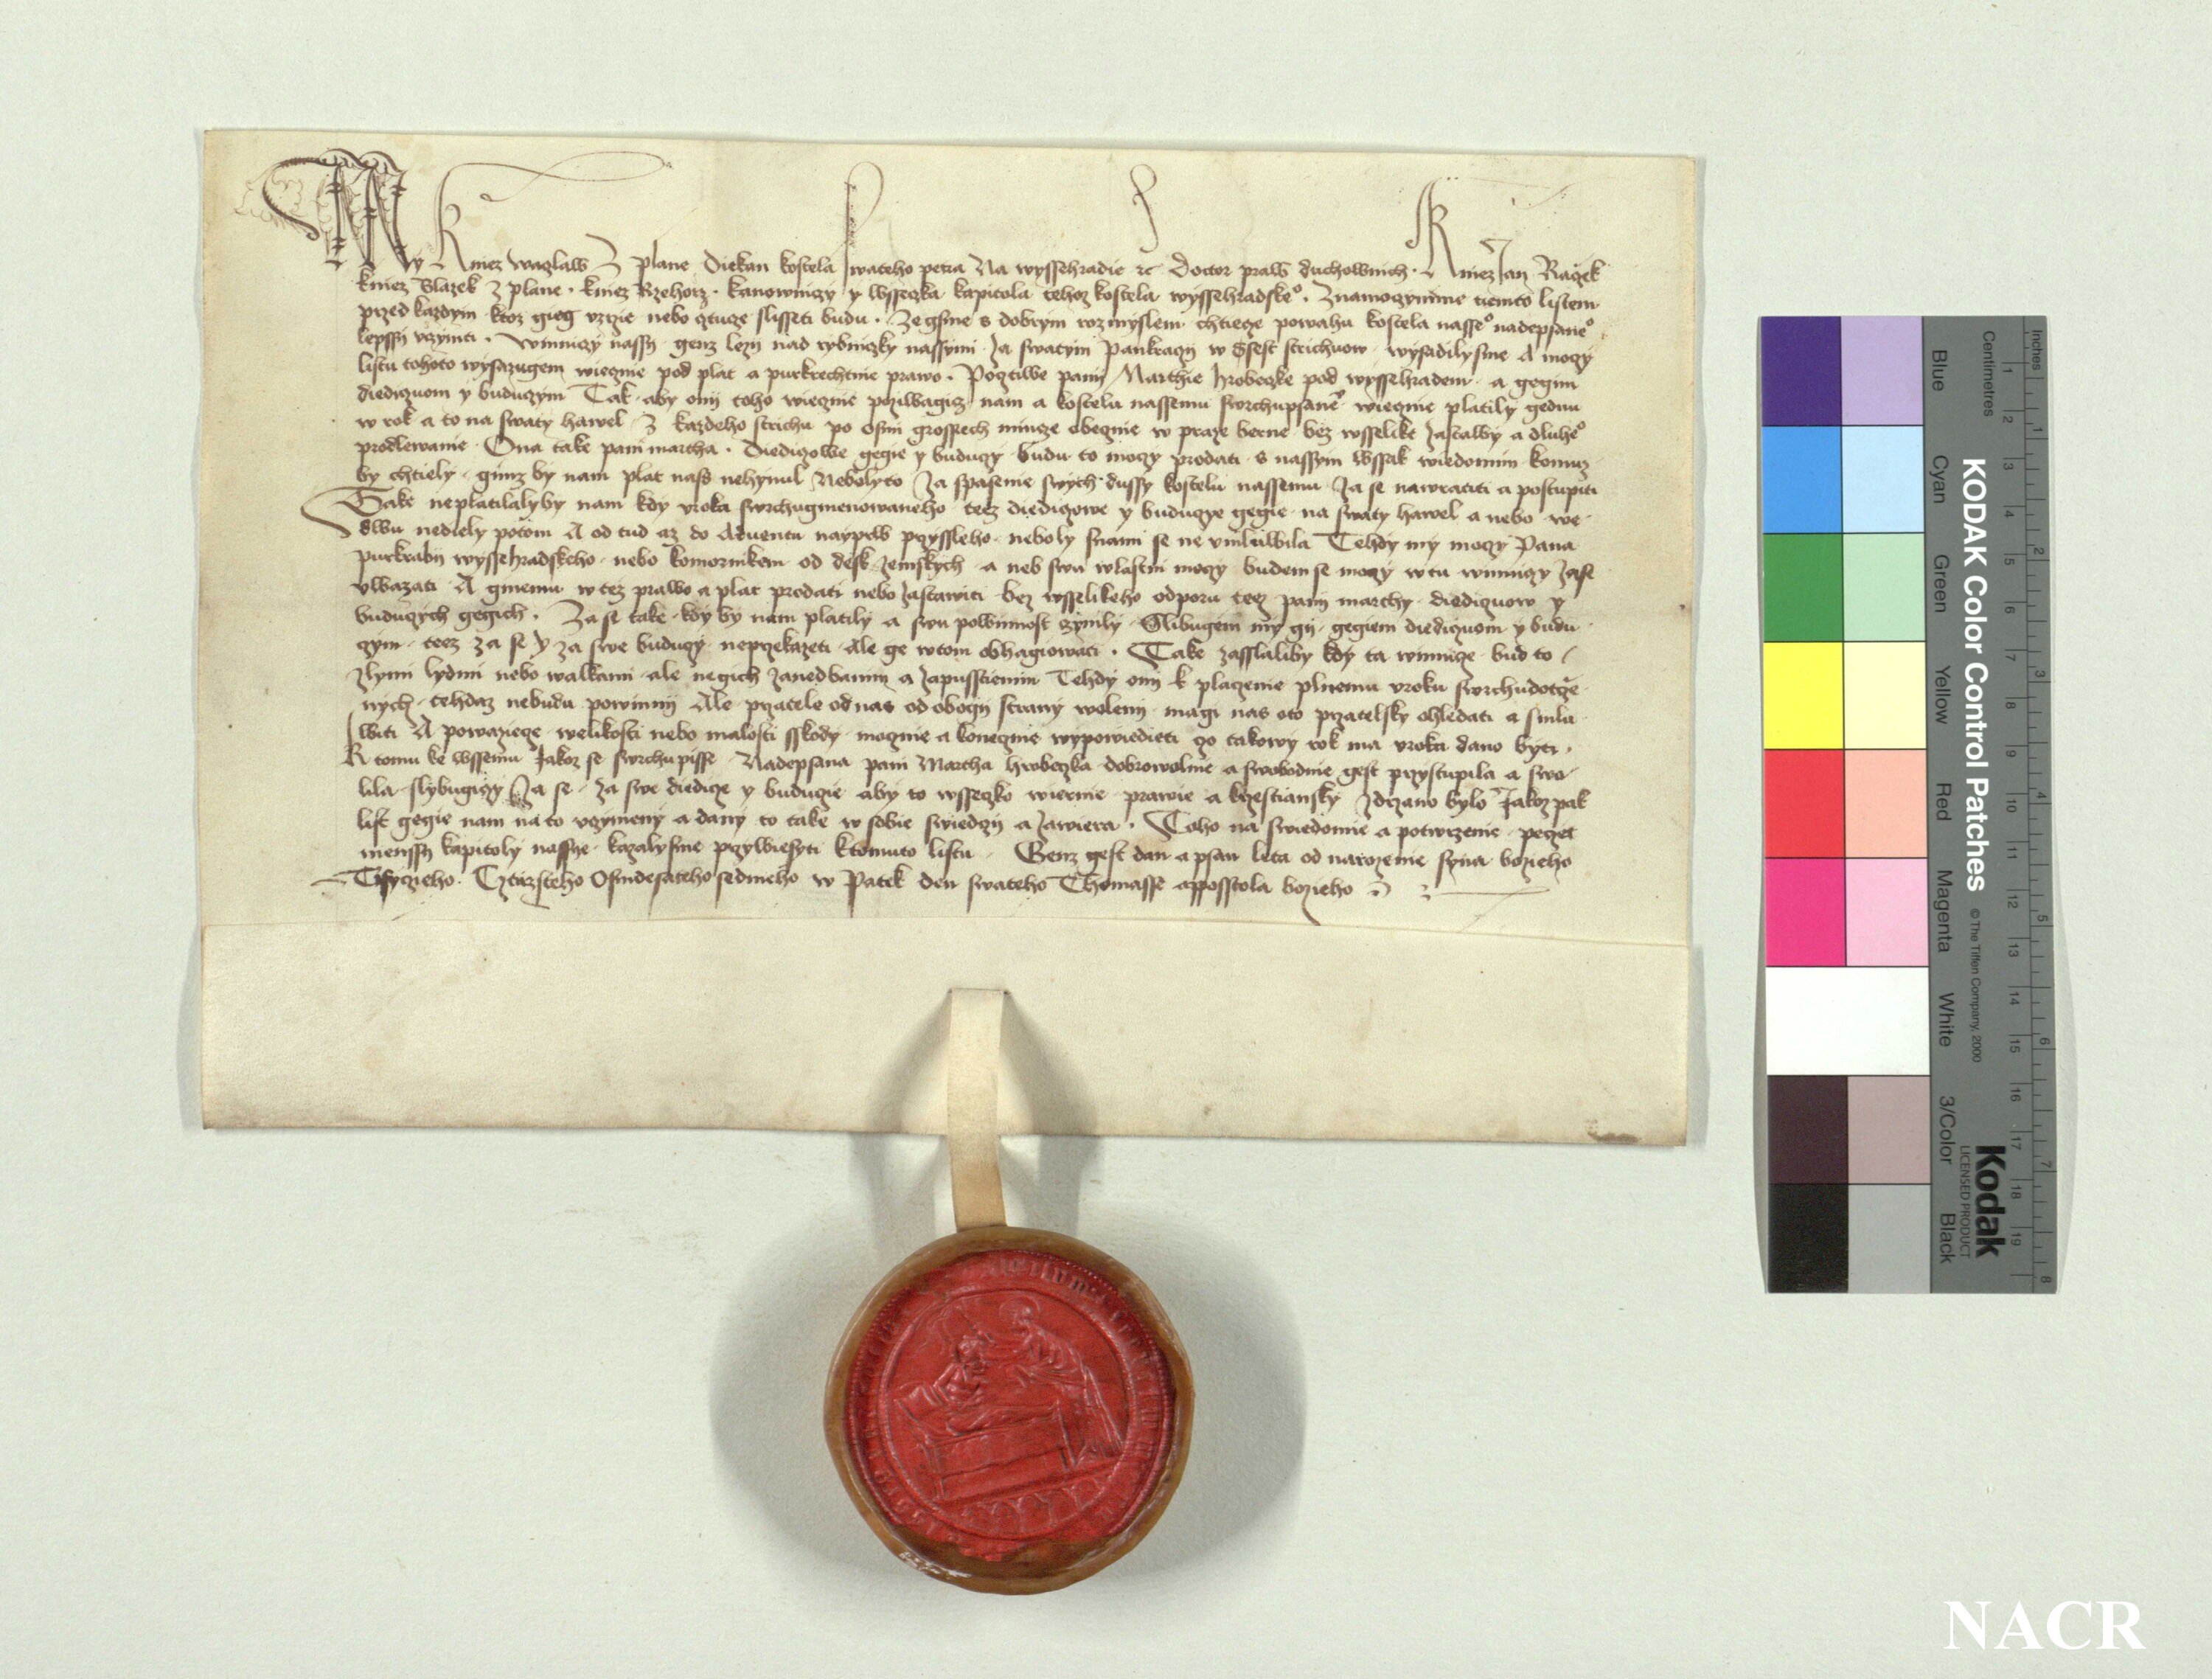 My Kniez Waczlaw z plane Diekan kostela swateho petra Na wyssehradie ꝛc Doctor praw duchownich · Kniez Jan Raczek
kniez Blazek z plane · kniez Rzehorz · kanowniczy y wsseczka kapitola tehoz kostela wyssehradske° · Znamo czynime tiemto listem
przed kazdym ktoz gieg vzrzie nebo cztucze slisseti budu · Ze gsme s dobrym rozmyslem chtiecze powahu kostela nasse° nadepsane°
lepssy vczyniti · winniczy nassy genz lezy nad rybniczky nassymi za swatym Pankraczy w Ssest strichuow wysadily sme A moczy
listu tohoto wysazugem wiecznie pod plat a purkrechtnie prawo · Pocztiwe panij Marthie hrobeczke pod wyssehradem a gegim
diediczuom y buduczym Tak aby onij toho wiecznie pozïwagicz nam a kostelu nassemu swrchupsane° wiecznie platily gednu
w rok a to na swaty hawel Z kazdeho strichu po osmi grossiech mincze obecznie w praze berne bez wsselike zastawy a dluhe°
prodlewanie · Ona take pani martha · Diediczowe gegie y buduczy budu to moczy prodati s nassym wssak wiedomim komuz
by chtiely · gimz by nam plat nass nehynul Nebolyto za spasenie swych dussy kostelu nassemu za se nawratiti a postupiti
Take neplatilalyby nam kdy vroka swrchugmenowaneho teez diediczowe y buduczye gegie na swaty hawel a nebo we
dwu nediely potom A od tud az do Aduentu nayprw przyssleho neboly snami se ne vmluwila Tehdy my moczy Pana
purkrabij wyssehradskeho nebo komornikem od desk zemskych a neb swu wlastni moczy budem se moczy w tu winniczy zase
vwazati A ginemu w tez prawo a plat prodati nebo zastawiti bez wsselikeho odporu teez panij marthy diediczuow y
buduczych gegich · Za se take kdy by nam platily a swu powinnost czynily Slibugem my gij gegiem diediczuom y budu
czym teez za se y za swe buduczy neprzekazeti Ale ge w tom obhagiowati · Take zasslaliby kdy ta winnicze bud to
zlymi lydmi nebo walkami ale negich zanedbanim a zapusstienim Tehdy onij k placzenie plnemu vroku swrchudotcze
nych tehdaz nebudu powinnij Ale przatele od nas od obogij strany wolenij magi nas oto przatelsky ohledati a smlu
witi A powaziecze welikosti nebo malosti sskody mocznie a konecznie wypowiedieti czo takowy rok ma vroka dano byti ·
K tomu ke wssemu Jakoz se swrchu pisse Nadepsana pani Martha hrobeczka dobrowolnie a swobodnie gest przystupila a swo
lila slybugiczy za se za swe diedicze y buduczie aby to wsseczko wiernie prawie a krzestiansky zdrzano bylo Jakoz pak
list gegie nam na to vczyneny a dany to take w sobie swiedczij a zawiera · Toho na swiedomie a potwrzenie peczet
menssy kapitoly nassye kazalysme przywiesyti k tomuto listu · Genz gest dan a psan leta od narozenie syna bozieho
Tisyczieho Cztirzsteho Osmdesateho sedmeho w Patek den swateho Thomasse apposstola bozieho
KODAK Color Control Patches
© The Tiffen Company, 2000
Kodak
LICENSED PRODUCT
Inches
Centimetres
Blue Cyan Green Yellow Red Magenta White 3/Color Black
1 2 3 4 5 6 7 8
1 2 3 4 5 6 7 8 9 10 11 12 13 14 15 16 17 18 19
NACR